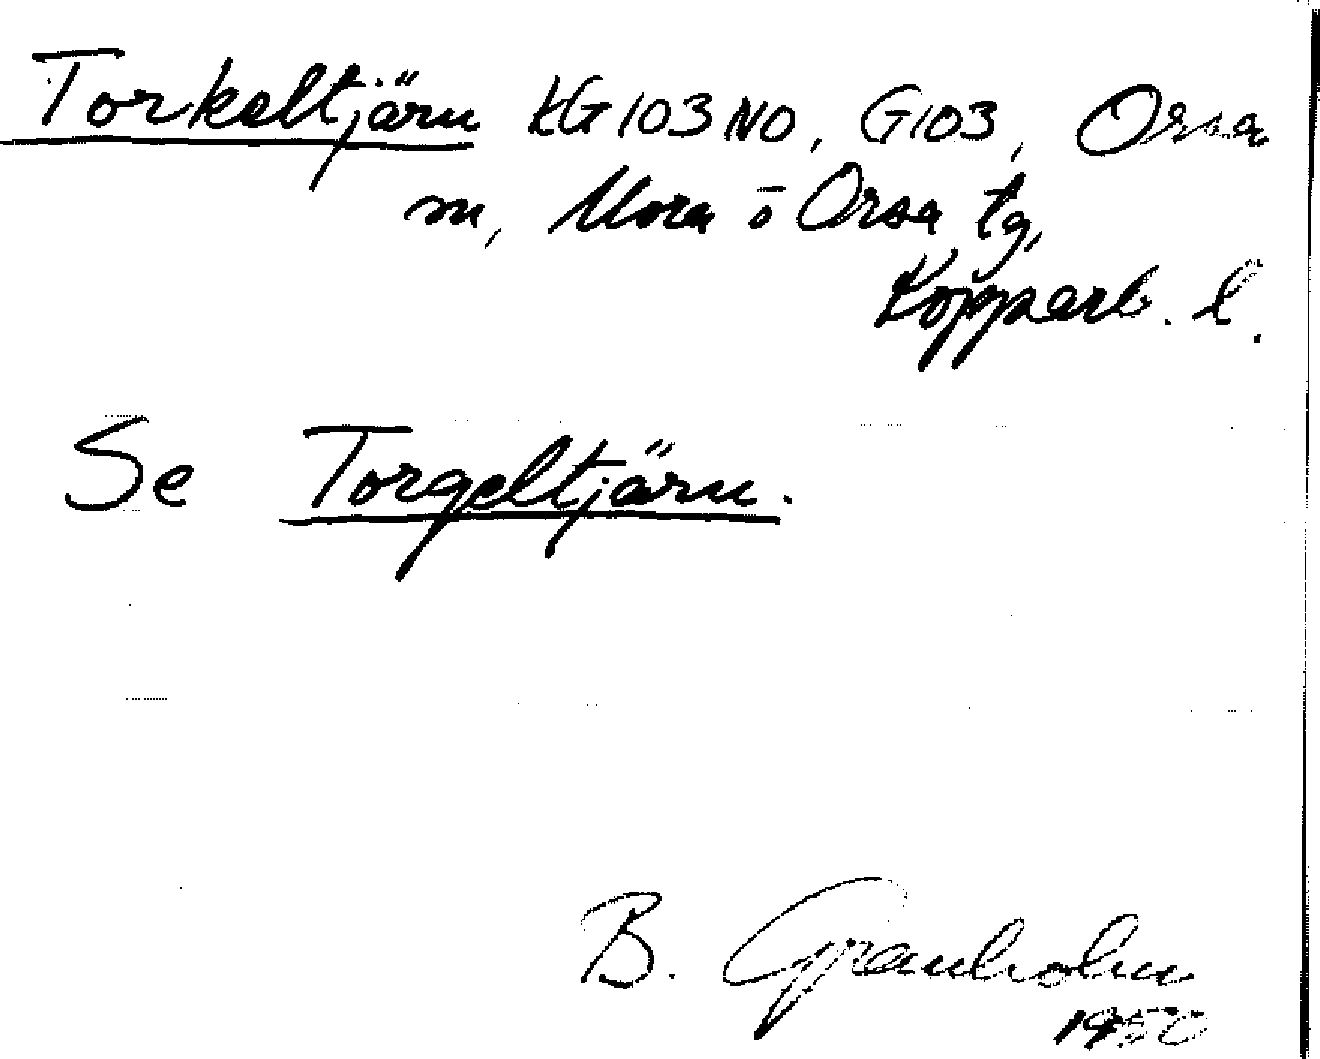 Torkeltjärn KG103NO, G103, Orsa
m, Mora o Orsa tg,
Kopparb. l.
Se Torgeltjärn.
B. Granholm
1950